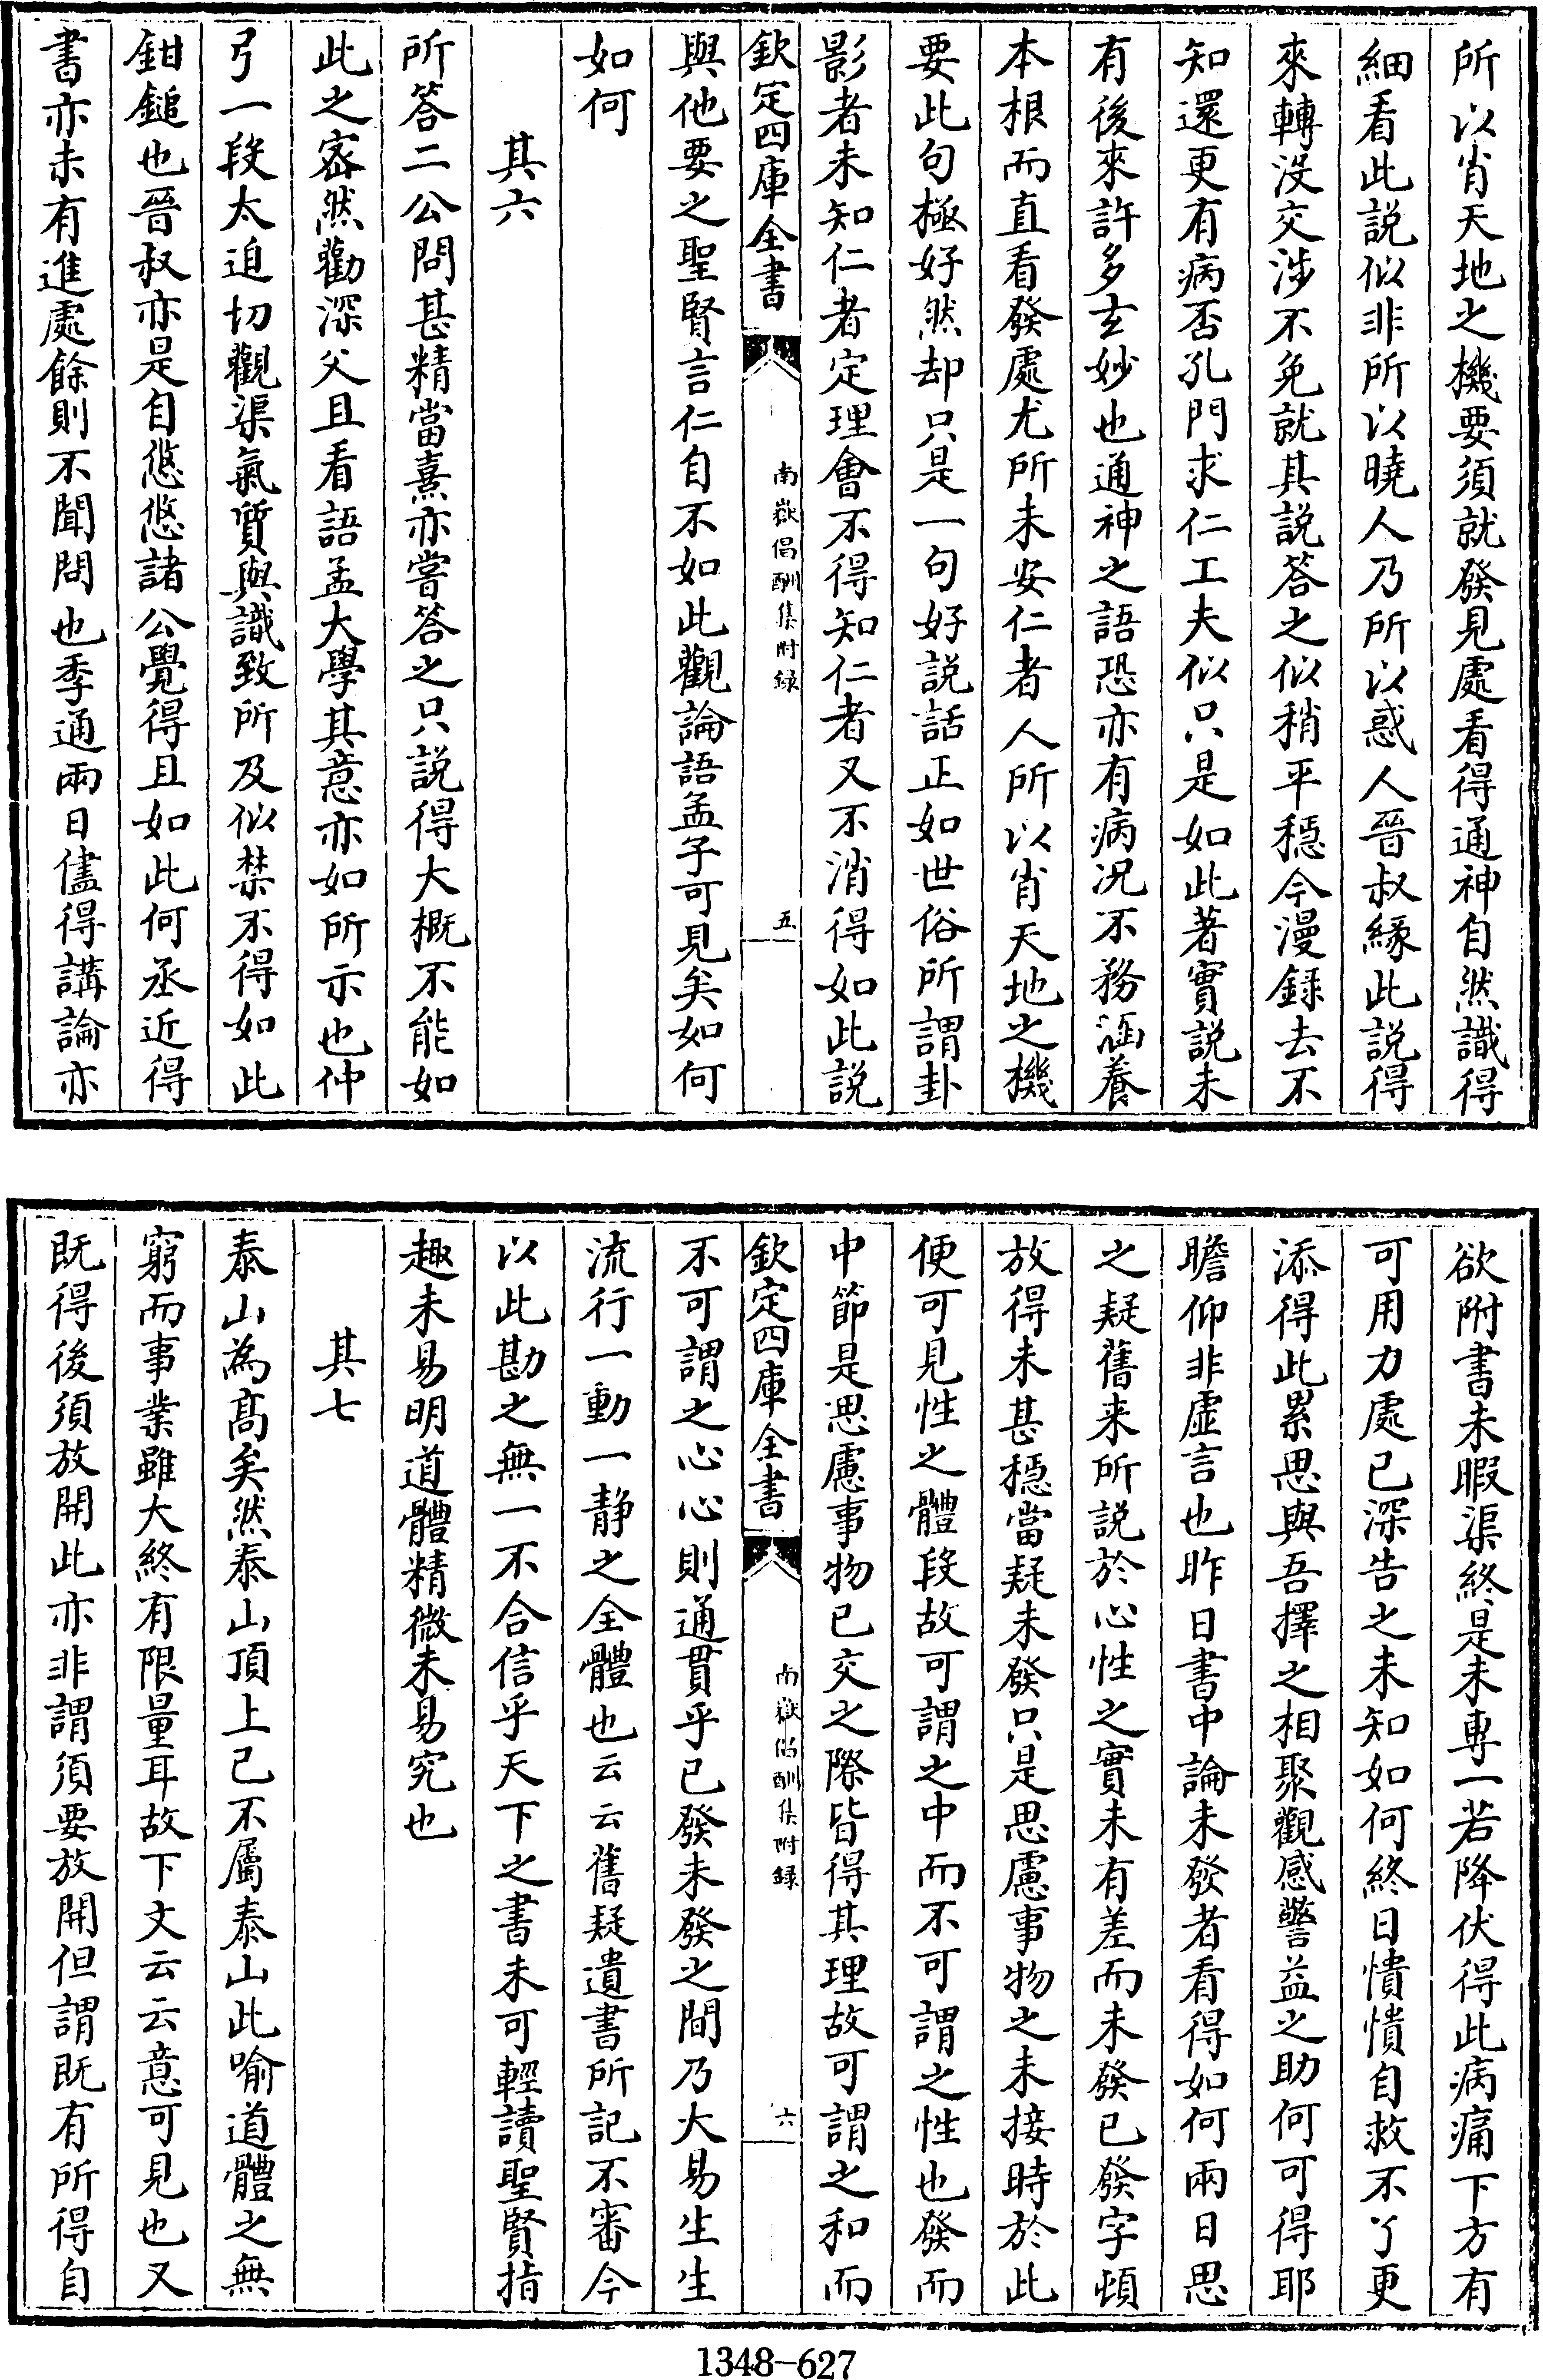 所以肖天地之機要須就發見處看得通神自然識得
細看此説似非所以曉人乃所以惑人晉叔緣此説得
來轉沒交涉不免就其説答之似稍平穩今漫錄去不
知還更有病否孔門求仁工夫似只是如此著實説未
有後來許多玄妙也通神之語恐亦有病況不務涵養
本根而直看發處尤所未安仁者人所以肖天地之機
要此句極好然却只是一句好説話正如世俗所謂卦
影者未知仁者定理會不得知仁者又不消得如此説
欽定四庫全書
南嶽倡酬集附録
五
與他要之聖賢言仁自不如此觀論語孟子可見矣如何
如何
其六
所答二公問甚精當熹亦嘗答之只説得大概不能如
此之密然勸深父且看語孟大學其意亦如所示也仲
弓一段太迫切觀渠氣質與識致所及似禁不得如此
鉗鎚也晉叔亦是自悠悠諸公覺得且如此何丞近得
書亦未有進處餘則不聞問也季通兩日儘得講論亦
欲附書未暇渠終是未專一若降伏得此病痛下方有
可用力處已深告之未知如何終日憒憒自救不了更
添得此累思與吾擇之相聚觀感警益之助何可得耶
瞻仰非虛言也昨日書中論未發者看得如何兩日思
之疑舊来所説於心性之實未有差而未發已發字頓
放得未甚穩當疑未發只是思慮事物之未接時於此
便可見性之體段故可謂之中而不可謂之性也發而
中節是思慮事物已交之際皆得其理故可謂之和而
欽定四庫全書
南嶽倡酬集附録
六
不可謂之心心則通貫乎已發未發之間乃大易生生
流行一動一静之全體也云云舊疑遺書所記不審今
以此勘之無一不合信乎天下之書未可輕讀聖賢指
趣未易明道體精微未易究也
其七
泰山為髙矣然泰山頂上已不屬泰山此喻道體之無
窮而事業雖大終有限量耳故下文云云意可見也又
既得後須放開此亦非謂須要放開但謂既有所得自
1348-627